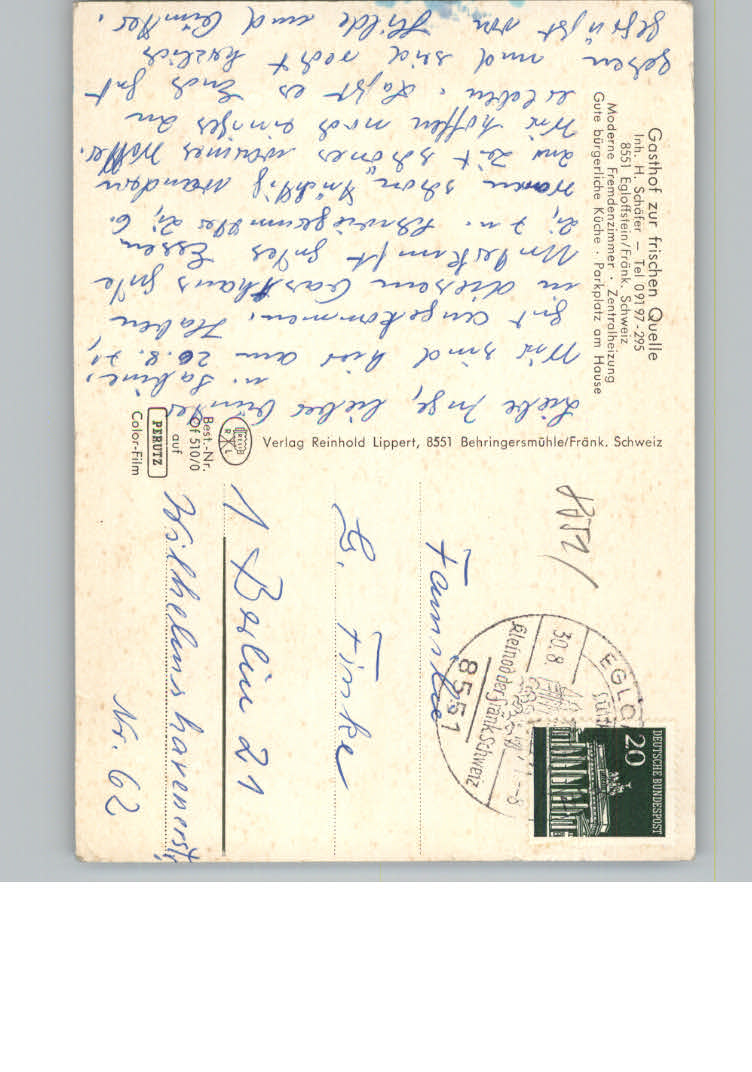 Gasthof zur frischen Quelle
Inh. H. Schäfer – Tel 09197-295
8551 Egloffstein/Fränk. Schweiz
Moderne Fremdenzimmer · Zentralheizung
Gute bürgerliche Küche · Parkplatz am Hause
Liebe Inge, lieber Günter
u. Sabine.
Wir sind hier am 26.8.71
gut angekommen. Haben
in diesem Gasthaus gute
Unterkunft gutes Essen
waren schon tüchtig wandern
zur Zeit schönes warmes Wetter.
Wir hoffen noch einiges zu
erleben. Laßt es Euch gut
gehen und seid recht herzlich
gegrüßt von Hilde und Günter.
Verlag Reinhold Lippert, 8551 Behringersmühle/Fränk. Schweiz
RL
Best.-Nr.
Of 510/0
auf
PERUTZ
Color-Film
DEUTSCHE BUNDESPOST
20
EGLO
30.8
-8
Kleinod der Fränk Schweiz
8551
Familie
G. Finke
1 Berlin 21
Wilhelmshavenerstr
Nr. 62